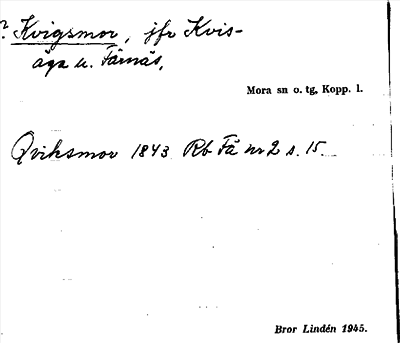 ? Kvigsmor, jfr Kvis-
äga u. Färnäs,
Mora sn o. tg, Kopp. l.
Qviksmor 1843 Rb Få nr 2 s. 15.
Bror Lindén 1945.